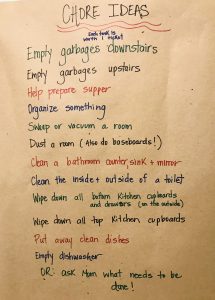 CHORE IDEAS
Each task is
worth 1 ticket
Empty garbages downstairs
Empty garbages upstairs
Help prepare supper
Organize something
Sweep or vacuum a room
Dust a room (Also do baseboards!)
Clean a bathroom counter, sink + mirror
Clean the inside + outside of a toilet
Wipe down all bottom kitchen cupboards
and drawers (on the outside)
Wipe down all top kitchen cupboards
Put away clean dishes
Empty dishwasher
OR: ask Mum what needs to be
done!